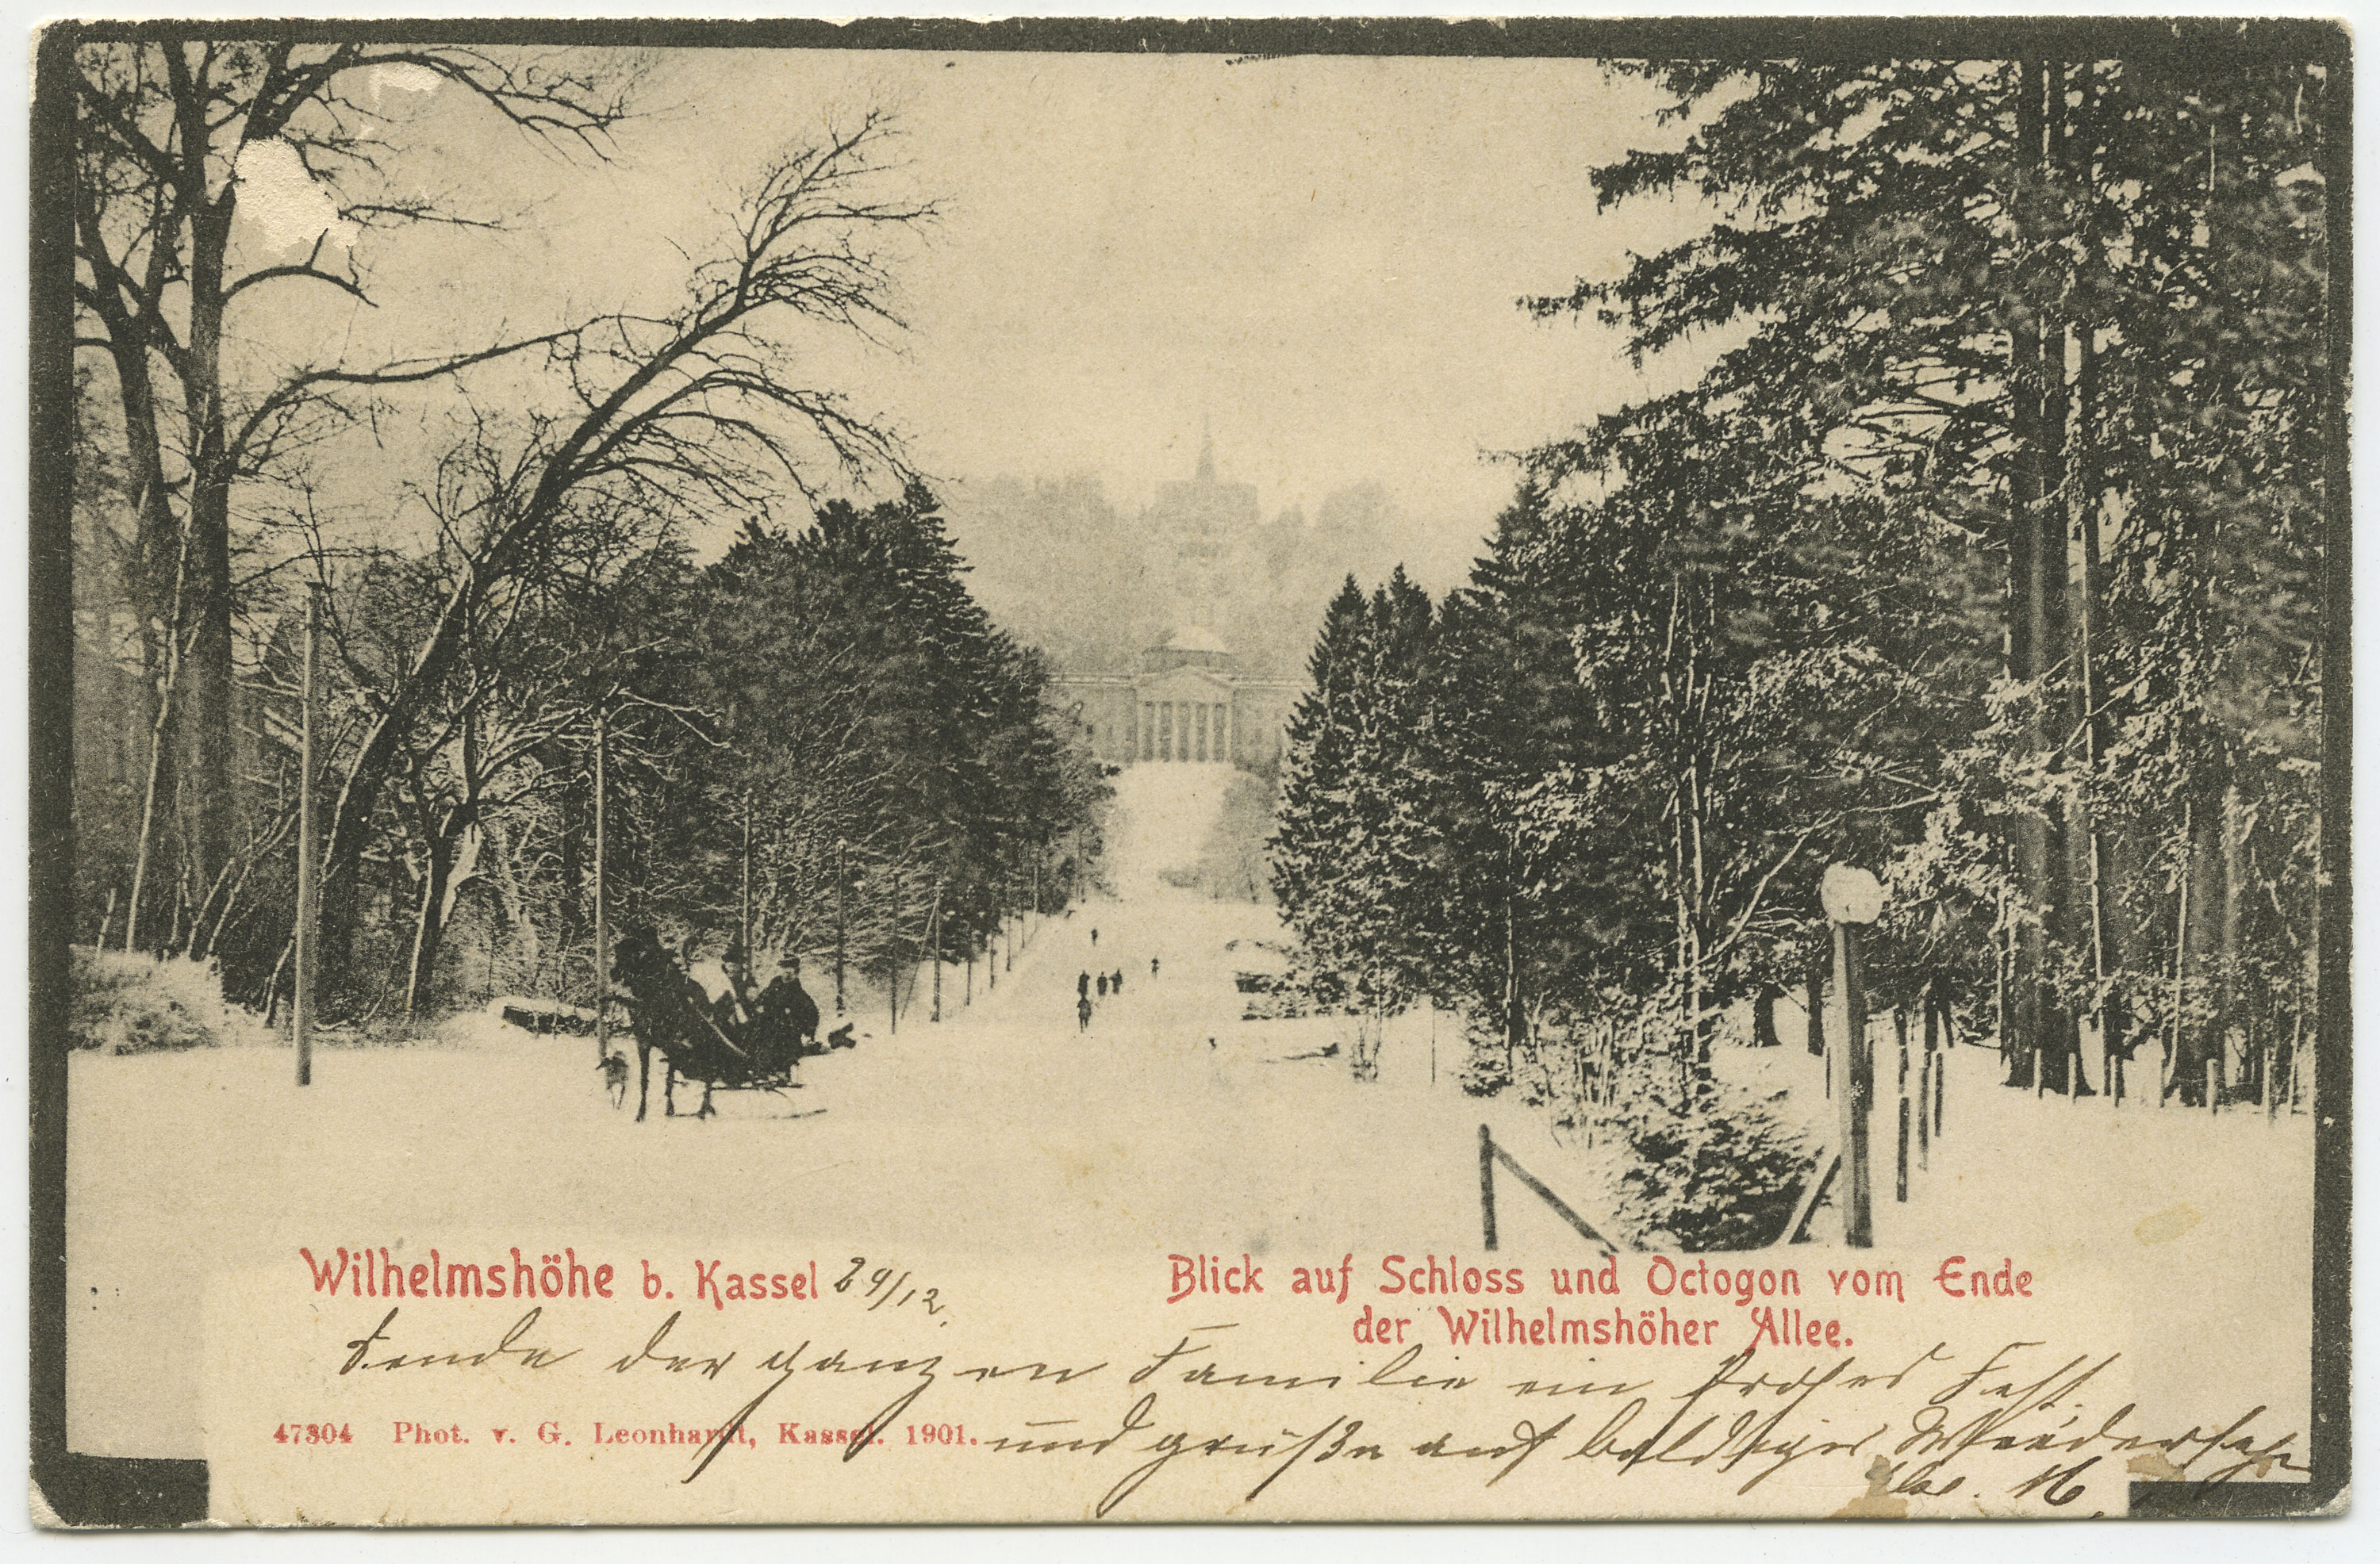 Wilhelmshöhe b. Kassel 29/12.
Blick auf Schloss und Octogon vom Ende
der Wilhelmshöher Allee.
Sende der ganzen Familie ein frohes Fest
47304 Phot. v. G. Leonhardt, Kassel. 1901.
und grüße auf baldiges Wiedersehn